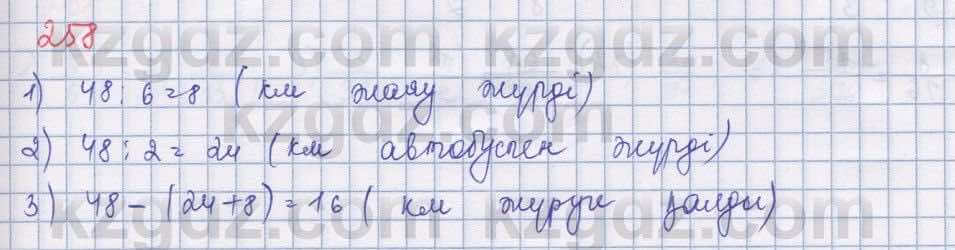 258
1) 48 : 6 = 8 (км жаяу жүрді)
2) 48 : 2 = 24 (км автобуспен жүрді)
3) 48 - (24 + 8) = 16 (км жүруге қалды)
kzgdz.com kzgdz.com